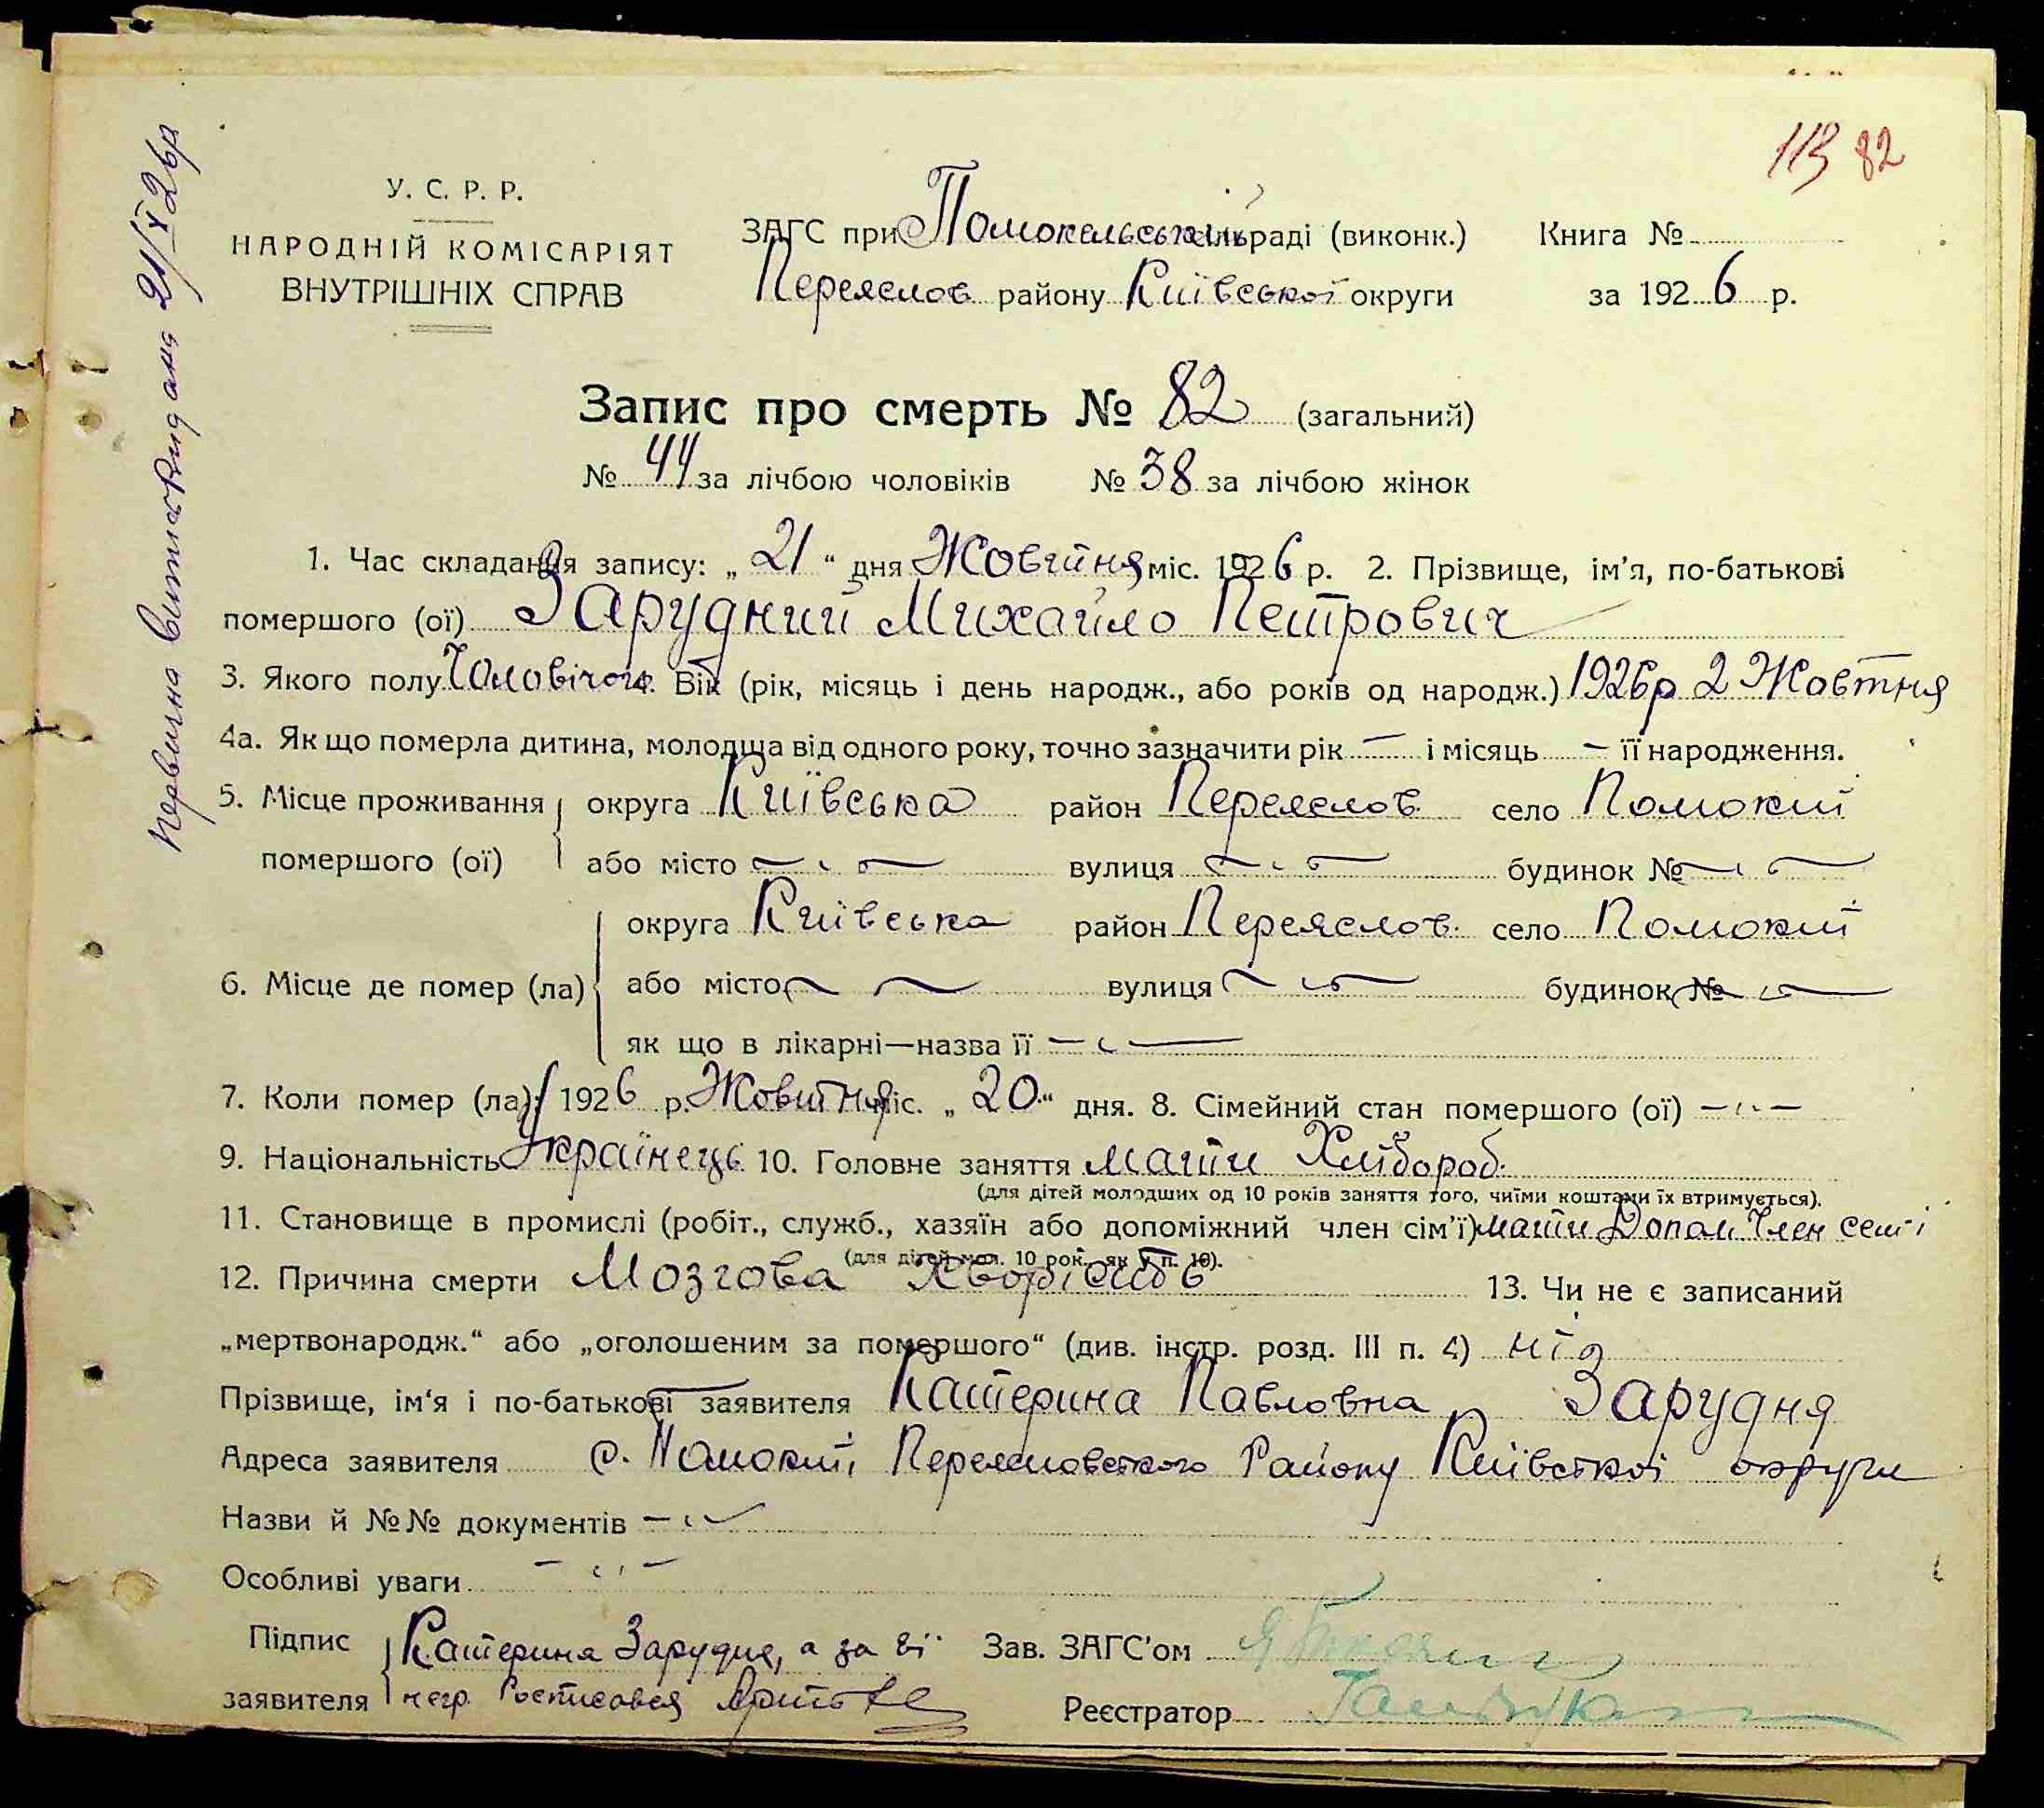 113 82
Первична виписка видана 21/X 26р
У. С. Р. Р.
НАРОДНІЙ КОМІСАРІЯТ
ВНУТРІШНІХ СПРАВ
ЗАГС при Помокельській сільраді (виконк.)
Переяслов. району Київської округи
Книга №
за 1926 р.
Запис про смерть № 82 (загальний)
№ 44 за лічбою чоловіків № 38 за лічбою жінок
1. Час складання запису: „ 21 “ дня Жовтня міс. 1926 р. 2. Прізвище, ім’я, по-батькові
помершого (ої) Зарудний Михайло Петрович
3. Якого полу Чоловічого 4. Вік (рік, місяць і день народж., або років од народж.) 1926р 2 Жовтня
4а. Як що померла дитина, молодща від одного року, точно зазначити рік — і місяць — її народження.
5. Місце проживання округа Київська район Переяслов. село Помокли
помершого (ої) або місто вулиця будинок №
округа Київська район Переяслов. село Помокли
6. Місце де помер (ла) або місто вулиця будинок №
як що в лікарні—назва її
7. Коли помер (ла): 1926 р. Жовтня міс. „ 20 “ дня. 8. Сімейний стан помершого (ої)
9. Національність Українець 10. Головне заняття мати Хлібороб.
(для дітей молодших од 10 років заняття того, чиїми коштами їх втримується).
11. Становище в промислі (робіт., служб., хазяїн або допоміжний член сім’ї) мати Допом. Член семї
(для дітей мол. 10 рок. як у п. 10).
12. Причина смерти Мозгова Хворість 13. Чи не є записаний
„мертвонародж.“ або „оголошеним за помершого“ (див. інстр. розд. III п. 4) ні
Прізвище, ім‘я і по-батькові заявителя Катерина Павловна Зарудня
Адреса заявителя с. Помокли, Переясловского Району Київської округи
Назви й №№ документів
Особливі уваги
Підпис Катерина Зарудня, а за її Зав. ЗАГС’ом
заявителя негр. Розписався Реєстратор